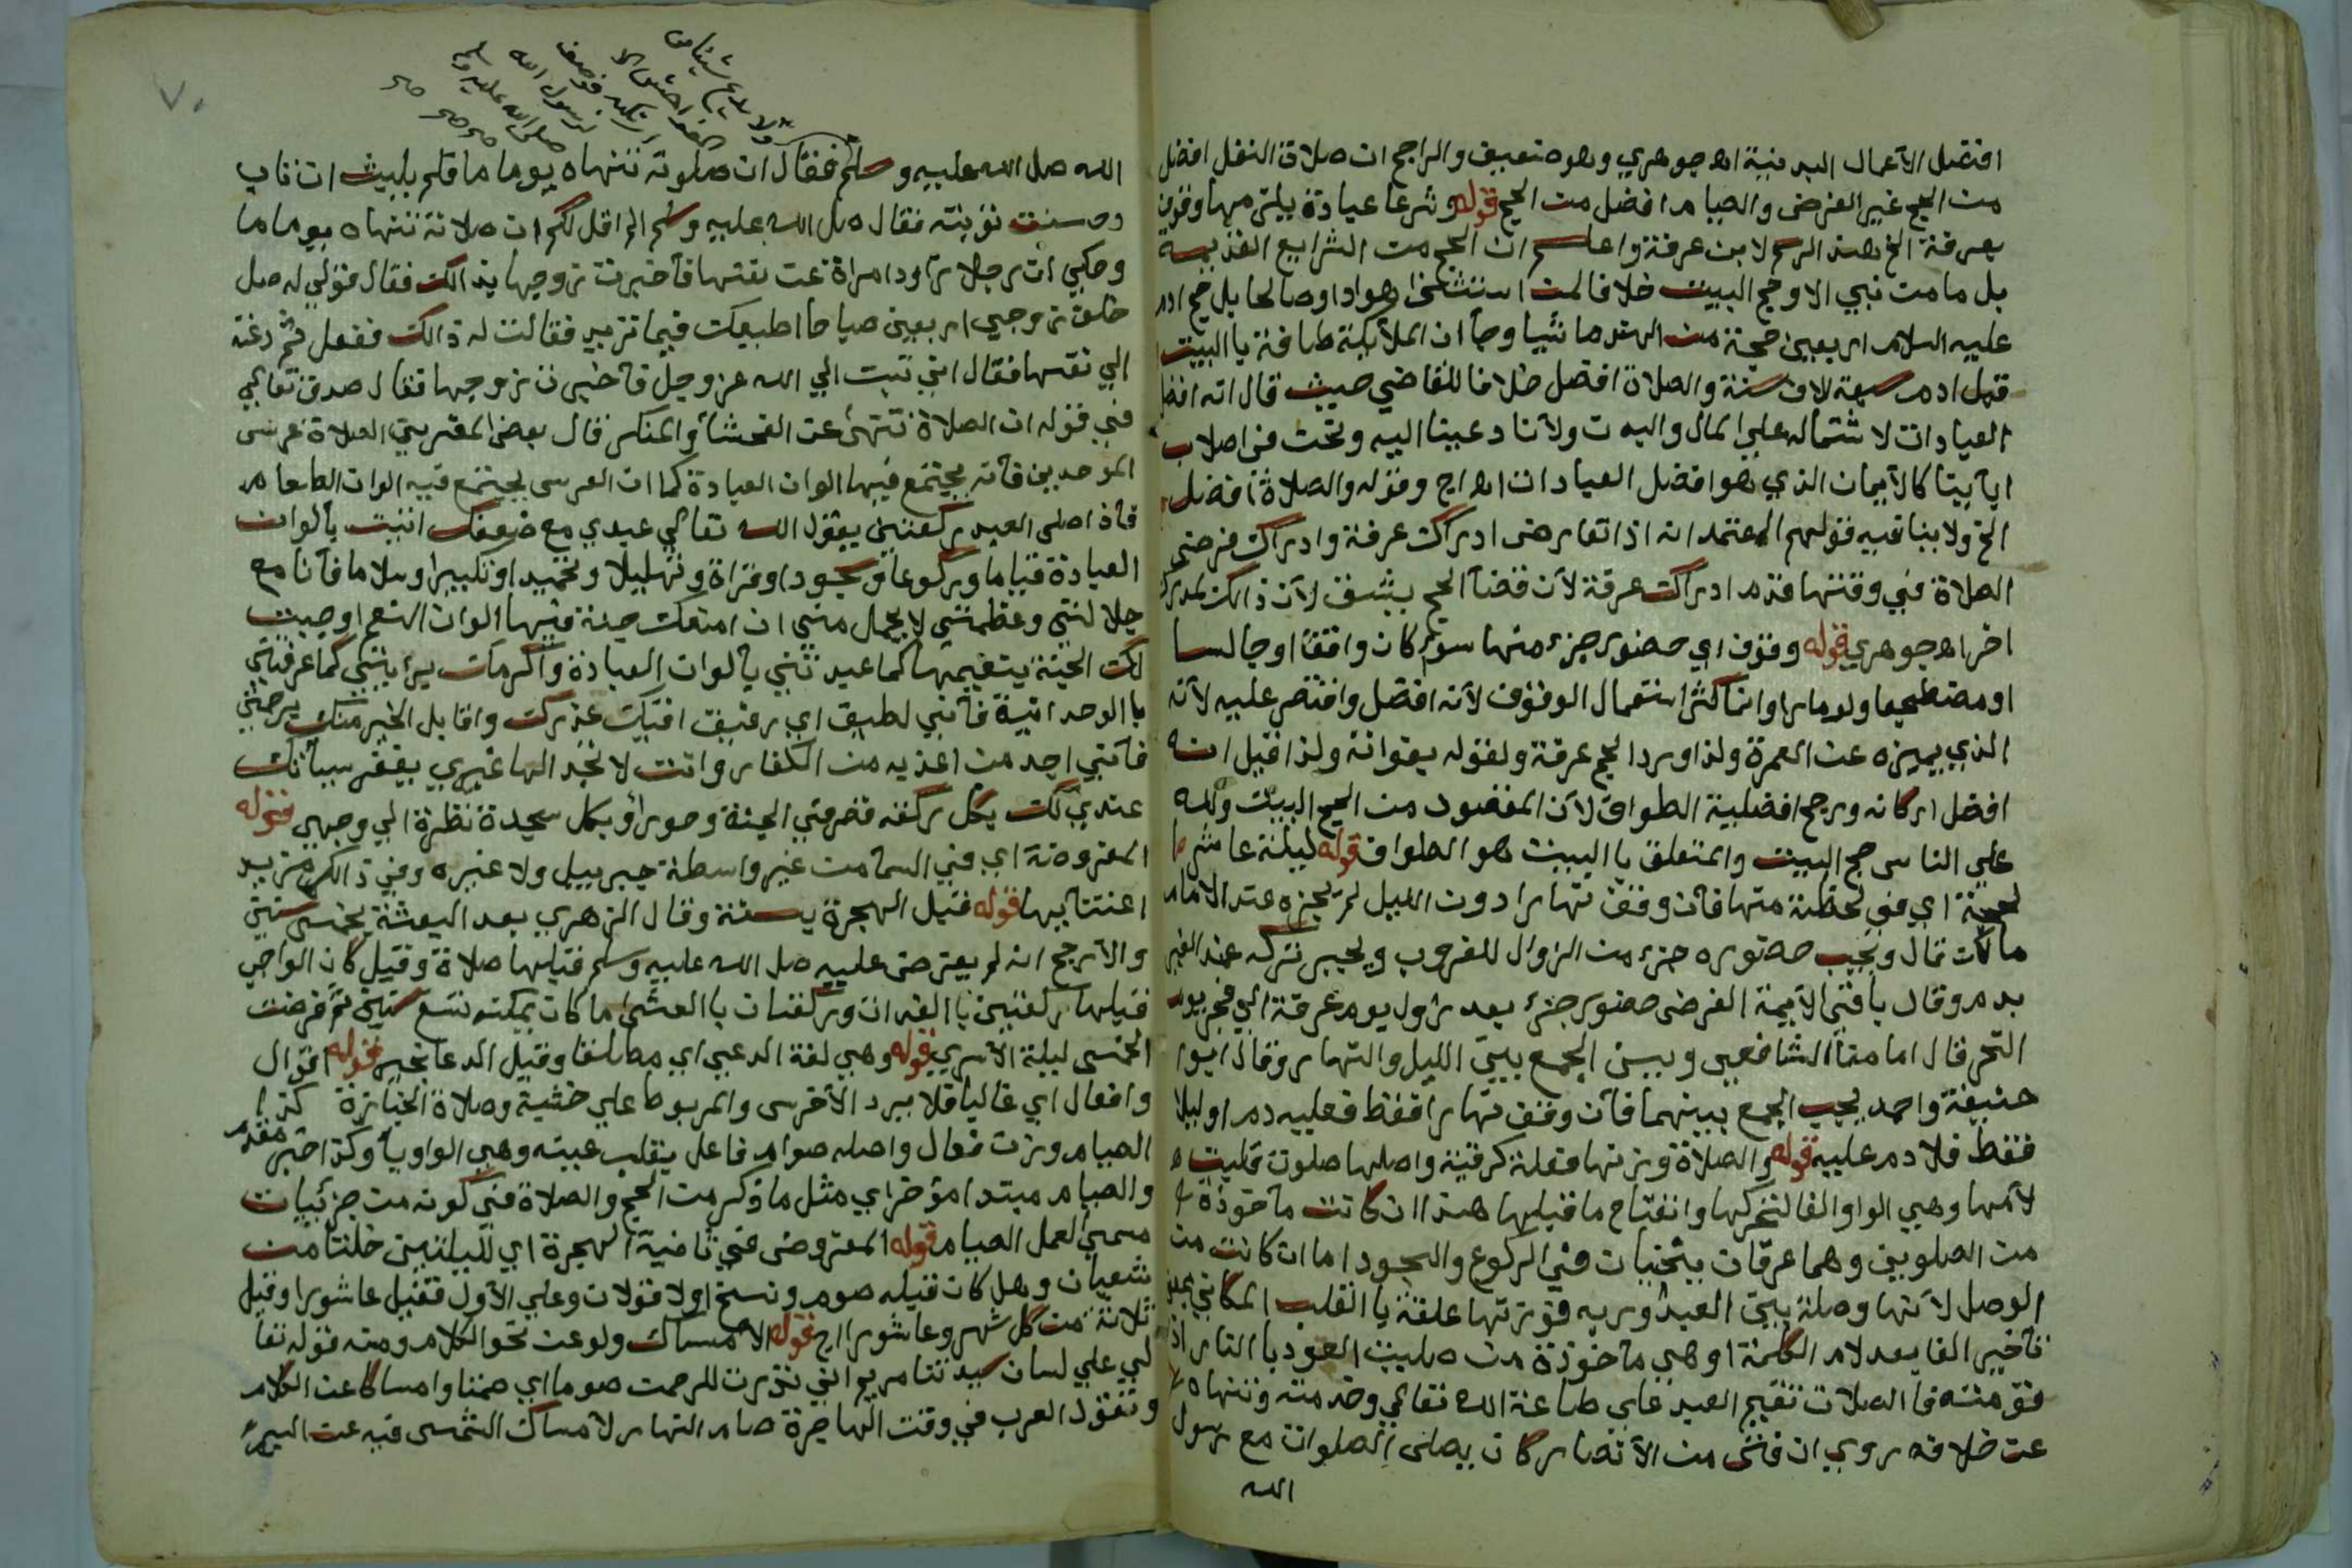 افضل الاعمال البدنية اه جوهري وهو ضعيف والراجح ان صلاة النفل افضل
من الحج غير الفرض والصيام افضل من الحج قوله وشرعا عبادة يلزمها وقوف
بعرفة الخ هذا الرسم لابن عرفة واعلم ان الحج من الشرايع القديمة
بل ما من نبي الا وحج البيت خلافا لمن استثنى هودا وصالحا بل حج ادم
عليه السلام اربعين حجة من الهند ماشيا وجآ ان الملائكة طافت بالبيت
قبل ادم سبعة الاف سنة والصلاة افضل خلافا للقاضي حيث قال انه افضل
العبادات لاشتماله علي المال والبدن ولانا دعينا اليه ونحن في اصلاب
ابآيينا كالايمان الذي هو افضل العبادات اه اج وقوله والصلاة افضل
الخ ولا ينافيه قولهم المعتمد انه اذا تعارض ادراك عرفة وادراك فرض
الصلاة في وقتها قدم ادراك عرفة لان قضآ الحج يشق لان ذالك لمدرك
اخر اه جوهري قوله وقوف اي حضور جزء منها سوآ كان واقفا او جالسا
او مضطجعا ولو مارا وانما كثر استعمال الوقوف لانه افضل واقتصر عليه لانه
الذي يميزه عن العمرة ولذا ورد الحج عرفة ولقوله بفواته ولذا قيل انه
افضل اركانه ورجح افضلية الطواف لان المقصود من الحج البيت ولله
علي الناس حج البيت والمتعلق باالبيت هو الطواف قوله ليلة عاشر ذا
لحجة اي في لحظة منها فان وقف نهارا دون الليل لم يجزه عند الامام
مالك قال ويجب حضوره جزء من الزوال للغروب ويجبر تركه عند الغير
بدم وقال باقي الايمة الفرض حضور جزء بعد زوال يوم عرفة الي فجر يوم
النحر قال امامنا الشافعي ويسن الجمع بين الليل والنهار وقال ابوا
حنيفة واحمد يجب الجمع بينهما فان وقف نهارا فقط فعليه دم او ليلا
فقط فلا دم عليه قوله والصلاة وزنها فعلة كرقبة واصلها صلوة قلبت
لامها وهي الواو الفا لتحركها وانفتاح ما قبلها هذا ان كانت ماخوذة
من الصلوين وهما عرقان ينحنيان في الركوع والسجود اما ان كانت من
الوصل لانها وصلة بين العبد وربه فوزنها علفة باالقلب المكاني بجعل
تاخير الفا بعد لام الكلمة او هي ماخوذة من صليت العود باالنار اذا
قومته فاالصلات تقيم العبد علي طاعة الله تعالي وخدمته وتنهاه
عن خلافه روي ان فتى من الانصار كان يصلى الصلوات مع رسول
الله
٧٠
ولا يدع شيئا من
الفواحش الا
ارتكبه فوصف
لرسول الله
صلى الله عليه وسلم
صح صح صح
الله صل الله عليه وسلم فقال ان صلوته تنهاه يوما ما فلم يلبث ان تاب
وحسنت توبته فقال صل الله عليه وسلم الم اقل لكم ان صلاته تنهاه يوما ما
وحكي ان رجلا راود امراة عن نفسها فاخبرت زوجها بذالك فقال قولي له صل
خلف زوجي اربعين صباحا اطيعك فيما تريد فقالت له ذالك ففعل ثم دعته
الي نفسها فقال اني تبت الي الله عز وجل فاخبرت زوجها فقال صدق تعالي
في قوله ان الصلاة تنهى عن الفحشآ والمنكر قال بعض المفسرين الصلاة عرس
الموحدين فانه يجتمع فيها الوان العبادة كما ان العرس يجتمع فيه الوان الطعام
فاذا صلى العبد ركعتين يقول الله تعالي عبدي مع ضعفك اتيت بالوان
العبادة قياما وركوعا وسجودا وقراة وتهليلا وتحميدا وتكبيرا وسلاما فانا مع
جلالتي وعظمتي لا يجمل مني ان امنعك جنة فيها الوان النعيم اوجبت
لك الجنة بنعيمها كما عبدتني بالوان العبادة واكرمك برايتي كما عرفتني
باالوحدانية فاني لطيف اي رفيق اقبل عذرك واقابل الخير منك برحمتي
فانني اجد من اعذبه من الكفار وانت لا تجد الها غيري يغفر سيأتك
عندي لك بكل ركعة قصر في الجنة وحورآ وبكل سجدة نظرة الي وجهي قوله
المفروضة اي في السما من غير واسطة جبرييل ولا غيره وفي ذالك مزيد
اعتنآ بها قوله قبل الهجرة بسنة وقال الزهري بعد البعثة بخمس سنين
والارجح انه لم يفترض عليه صل الله عليه وسلم قبلها صلاة وقيل كان الواجب
قبلها ركعتين باالغداة وركعتان باالعشي ما كان بمكة تسع سنين ثم فرضت
الخمس ليلة الاسري قوله وهي لغة الدعي اي مطلقا وقيل الدعا بخير قوله اقوال
وافعال اي غالبا فلا يرد الاخرس والمربوط علي خشبة وصلاة الجنازة كذا
الصيام وزن فعال واصله صوام فاعل بقلب عينه وهي الواو يآ وكذا خبر مقدم
والصيام مبتدا مؤخر اي مثل ما ذكر من الحج والصلاة في كونه من جزئيات
مسمى العمل الصيام قوله المفروض في ثانية الهجرة اي لليلتين خلتا من
شعبان وهل كان قبله صوم ونسخ اولا قولان وعلي الاول فقيل عاشورا وقيل
ثلاثة من كل شهر وعاشورا اج قوله الامساك ولو عن نحو الكلام ومنه قوله تعا
لي علي لسان سيدتنا مريم اني نذرت للرحمن صوما اي صمتا وامساكا عن الكلام
وتقول العرب في وقت الهاجرة صام النهار لامساك الشمس فيه عن السير